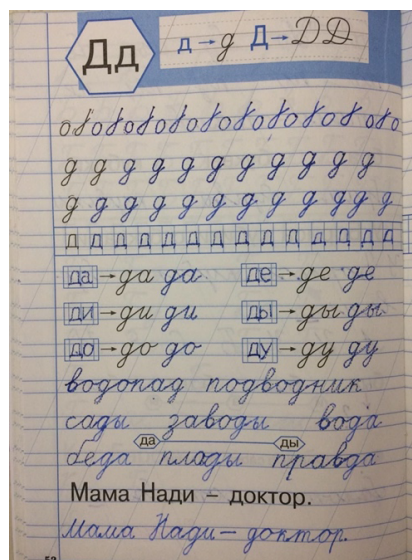 Дд д → д Д → Д Д
д д д д д д д д д д д
д д д д д д д д д д д д
д д д д д д д д д д д д д д
да → да да де → де де
ди → ди ди ды → ды ды
до → до до ду → ду ду
водопад подводник
сады заводы вода
да ды
беда плоды правда
Мама Нади – доктор.
Мама Нади – доктор.